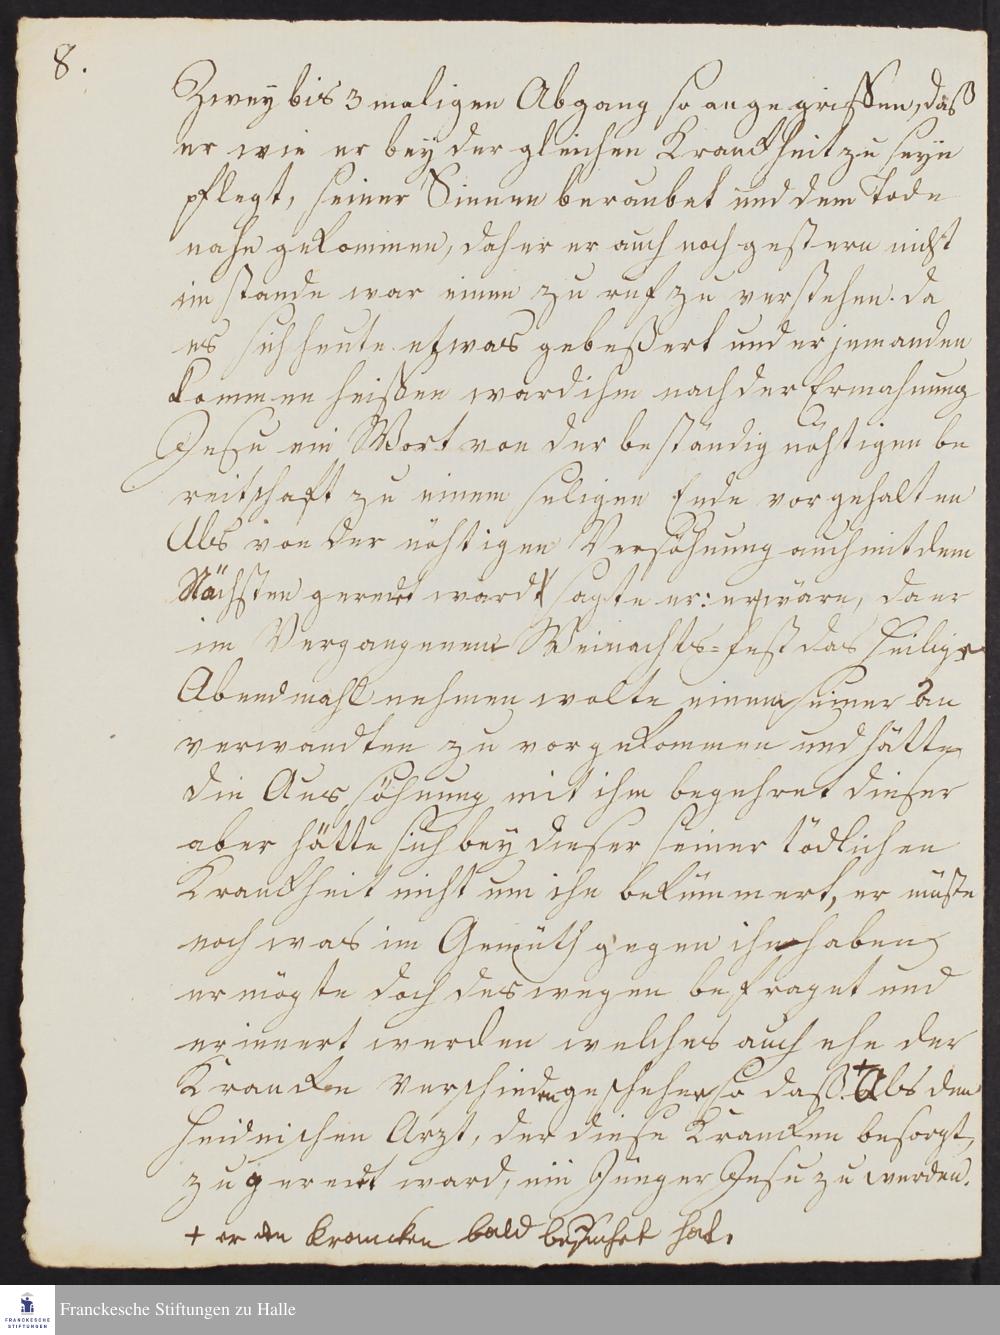 8.
Zwey bis 3 maligen Abgang so angegriffen, daß
er wie er bey der gleichen Kranckheit zu seyn
pflegt, seiner Sinnen beraubet und dem Tode
nahe gekommen, daher er auch noch gestern nicht
im stande war einen zu ruf zu verstehen. da
es sich heute etwas gebeßert und er jemanden
kommen heißen ward ihm nach der Ermahnung
Jesu ein Wort von der beständig nöhtigen be
reitschaft zu einem seligen Ende vorgehalten
Als von der nöhtigen Versöhnung auch mit dem
Nächsten geredet ward sagte er: er wäre, da er
im Vergangenen Weinachts=Fest das heilige
Abendmahl nehmen wolte einem seiner An
verwandten zu vorgekommen und hätte
die Aussöhnung mit ihm begehret dieser
aber hätte sich bey dieser seiner tödlichen
Kranckheit nicht um ihn bekümmert, er müste
noch was im Gemüth gegen ihn haben
er mögte doch deswegen befraget und
erinnert werden welches auch ehe der
Krancke verschieden geschehen so daß + Als dem
heidnischen Arzt, der diese Krancken besorgt,
zugeredet ward, ein Jünger Jesu zu werden.
+ er den Krancken bald besuchet hat.
FRANCKESCHE
STIFTUNGEN
Franckesche Stiftungen zu Halle